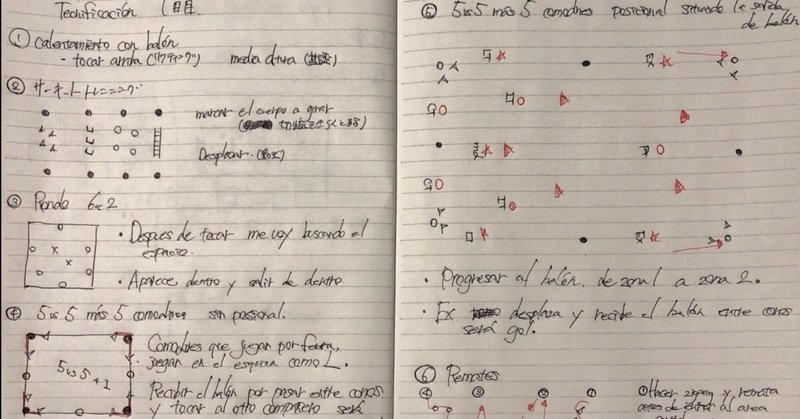 Tecnificación
① calentamiento con balón
- tocar arriba ("リフティング") media altura
② サーキットトレーニング
marcar el cuerpo a girar
Desplazar
③ Rondo 6vs2
• Despues de tocar me voy buscando el
espacio.
• Aparece dentro y salir de dentro
④ 5vs5 más 5 comodines sin posicional.
Comodines que juegan por fuera,
juegan en el esquina como L.
5vs5+1
Recibir el balón por pasar entre conos
y tocar al otro compañero será
⑤ 5vs5 más 5 comodines posicional situando la salida
de balón
• Progresar al balón, de zona 1 a zona 2.
• Ex desplaza y recibe el balón entre conos
será gol.
⑥ Remates
④ ③ ② ①
① Hacer zigzag y remata
antes de entrar al area